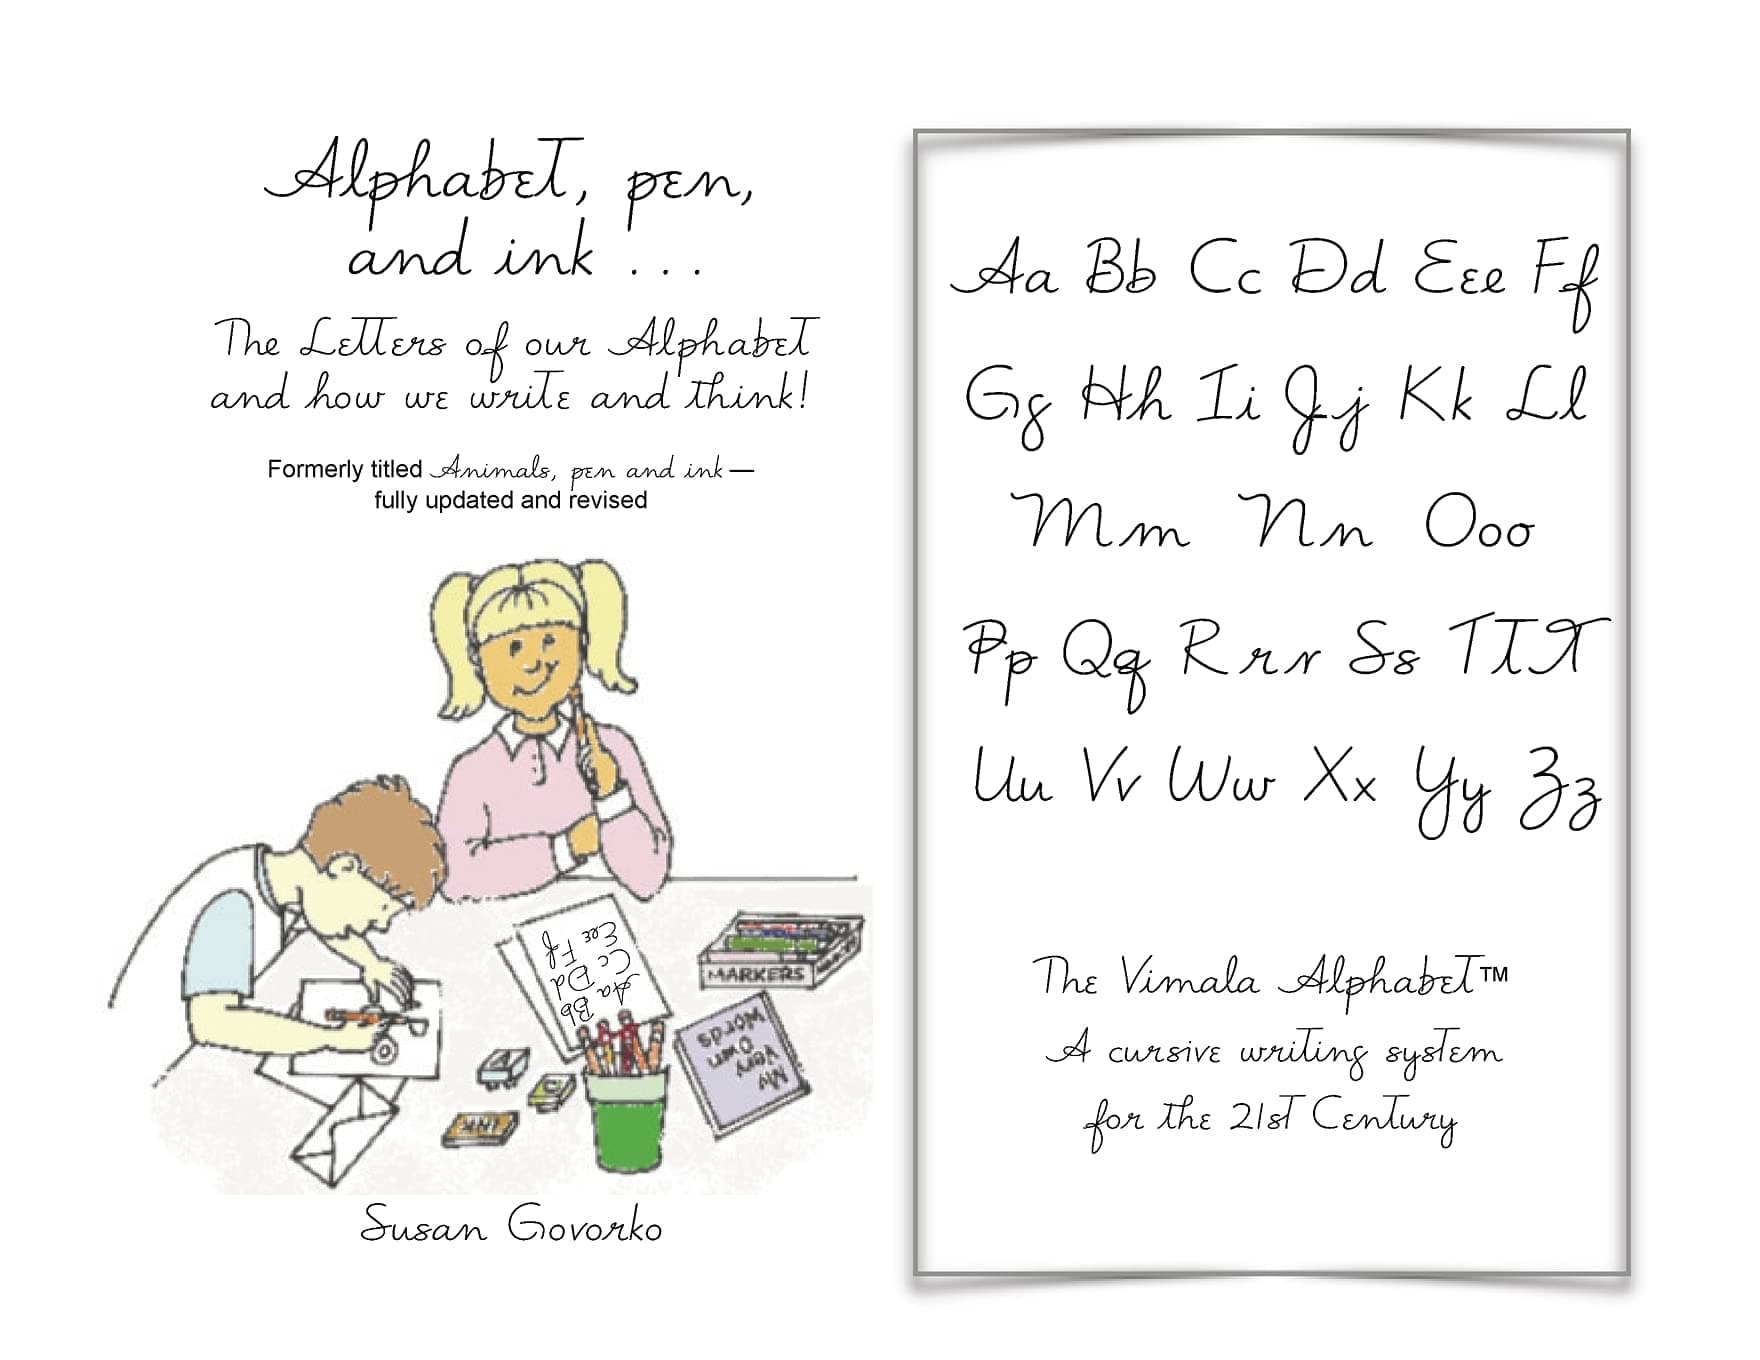 Alphabet, pen,
and ink . . .
The Letters of our Alphabet
and how we write and think!
Formerly titled Animals, pen and ink —
fully updated and revised
Eee Ff
Cc Dd
Aa Bb
MARKERS
My
Very
Own
Words
INK
Susan Govorko
Aa Bb Cc Dd Eee Ff
Gg Hh Ii Jj Kk Ll
Mm Nn Ooo
Pp Qq Rrr Ss TTT
Uu Vv Ww Xx Yy Zz
The Vimala Alphabet™
A cursive writing system
for the 21st Century